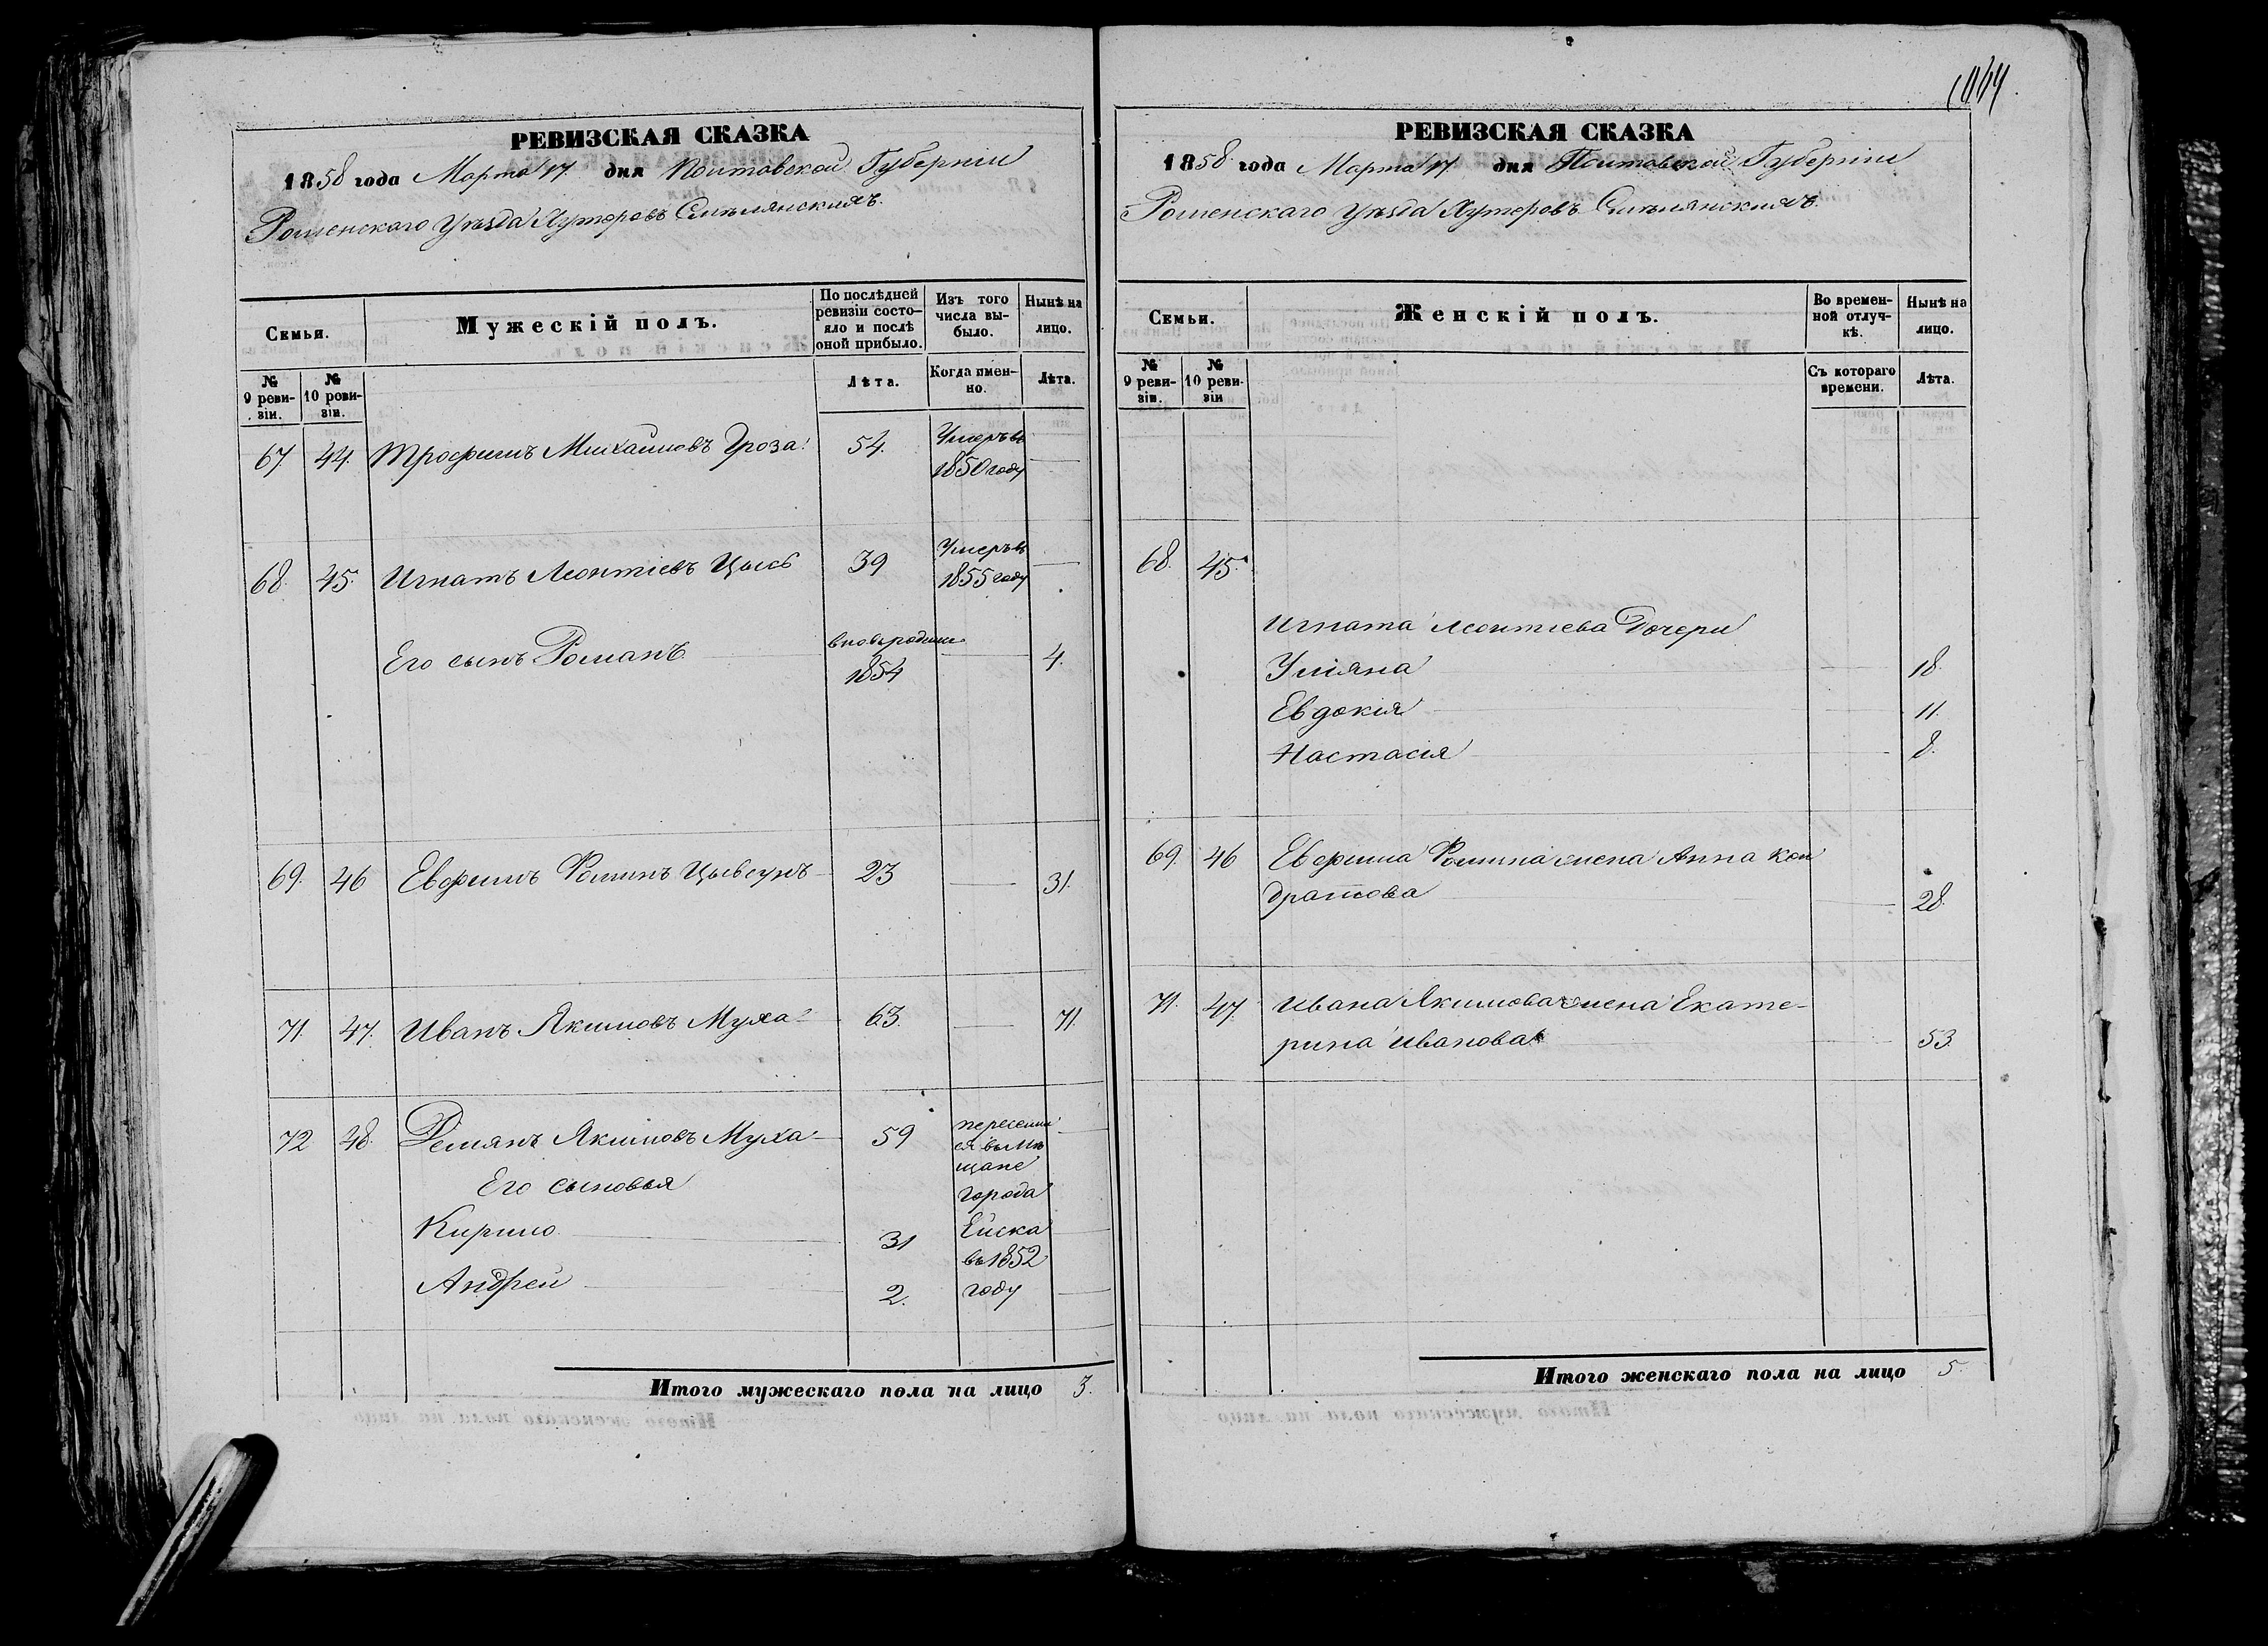 РЕВИЗСКАЯ СКАЗКА
1858 года Марта 17 дня Полтавской Губерніи
Роменскаго Уѣзда Хуторовъ Смѣлянскихъ.
Семьи.
Мужескій полъ.
По послѣдней ревизіи состо-
яло и послѣ оной прибыло.
Изъ того числа вы-
было.
Нынѣ на лицо.
№ 9 реви-
зіи.
№ 10 реви-
зіи.
Лѣта.
Когда имен-
но.
Лѣта.
67 44. Трофимъ Михайловъ Гроза 54. Умеръ въ
1850 году
68. 45. Игнатъ Леонтіевъ Цысь 39 Умеръ въ
1855 году
Его сынъ Романъ вновь родил 4.
1854
69. 46 Евфимъ Фоминъ Цывсунъ 23 31.
71. 47. Иванъ Якимовъ Муха 63. 71.
72 48. Демянъ Якимовъ Муха 59 переселил
ся въ мѣ
щане
Его сыновья города
Кирило 31 Ейска
въ 1852
Андрей 2. году
Итого мужескаго пола на лицо 3.
РЕВИЗСКАЯ СКАЗКА
1858 года Марта 17 дня Полтавской Губерніи
Роменскаго Уѣзда Хуторовъ Смѣлянскихъ.
Семьи.
Женскій полъ.
Во времен-
ной отлуч-
кѣ.
Нынѣ на лицо.
№ 9 реви-
зіи.
№ 10 реви-
зіи
Съ котораго времени.
Лѣта.
68. 45.
Игната Леонтіева Дочери
Уліяна 18
Евдокія 11.
Настасія 8.
69. 46 Евфима Фомина жена Анна Кон
дратова 28.
71. 47. Ивана Якимова жена Екате-
рина Иванова 53.
Итого женскаго пола на лицо 5